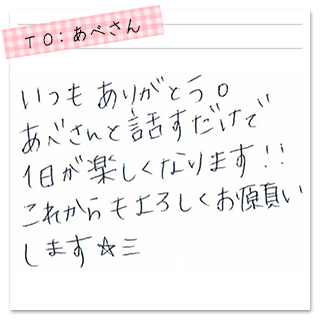 TO:あべさん
いつもありがとう。
あべさんと話すだけで
1日が楽しくなります!!
これからもよろしくお願い
します☆ミ